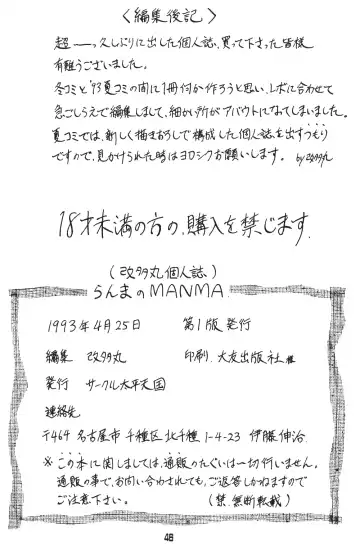 〈編集後記〉
超──っ久しぶりに出した個人誌、買って下さった皆様
有難うございました。
冬コミと'93夏コミの間に1冊何か作ろうと思い、レボに合わせて
急ごしらえで編集しまして、細かい所がアバウトになってしまいました。
夏コミでは、新しく描きおろしで構成した個人誌を出すつもり
ですので、見かけられた時はヨロシクお願いします。 by改多丸
18才未満の方の、購入を禁じます.
(改多丸個人誌、)
らんまのMANMA.
1993年4月25日 第1版発行
編集 改多丸 印刷. 大友出版社
発行 サークル太平天国
連絡先
〒464 名古屋市千種区北千種1-4-23 伊藤伸治.
※ この本に関しましては、通販のたぐいは一切行いません。
通販の事で、お問い合わされても、ご返答しかねますので
ご注意下さい。 (禁.無断転載)
48